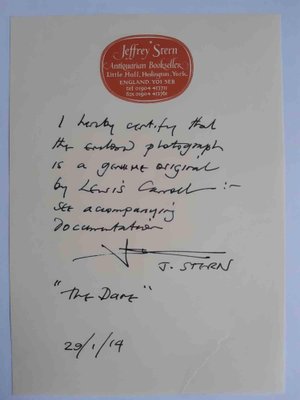 Jeffrey Stern
Antiquarian Bookseller
Little Hall, Heslington, York.
ENGLAND. YO1 5EB
I hereby certify that
the enclosed photograph
is a genuine original
by Lewis Carroll :-
see accompanying
Documentation
J. STERN
"The Dare"
29/1/14